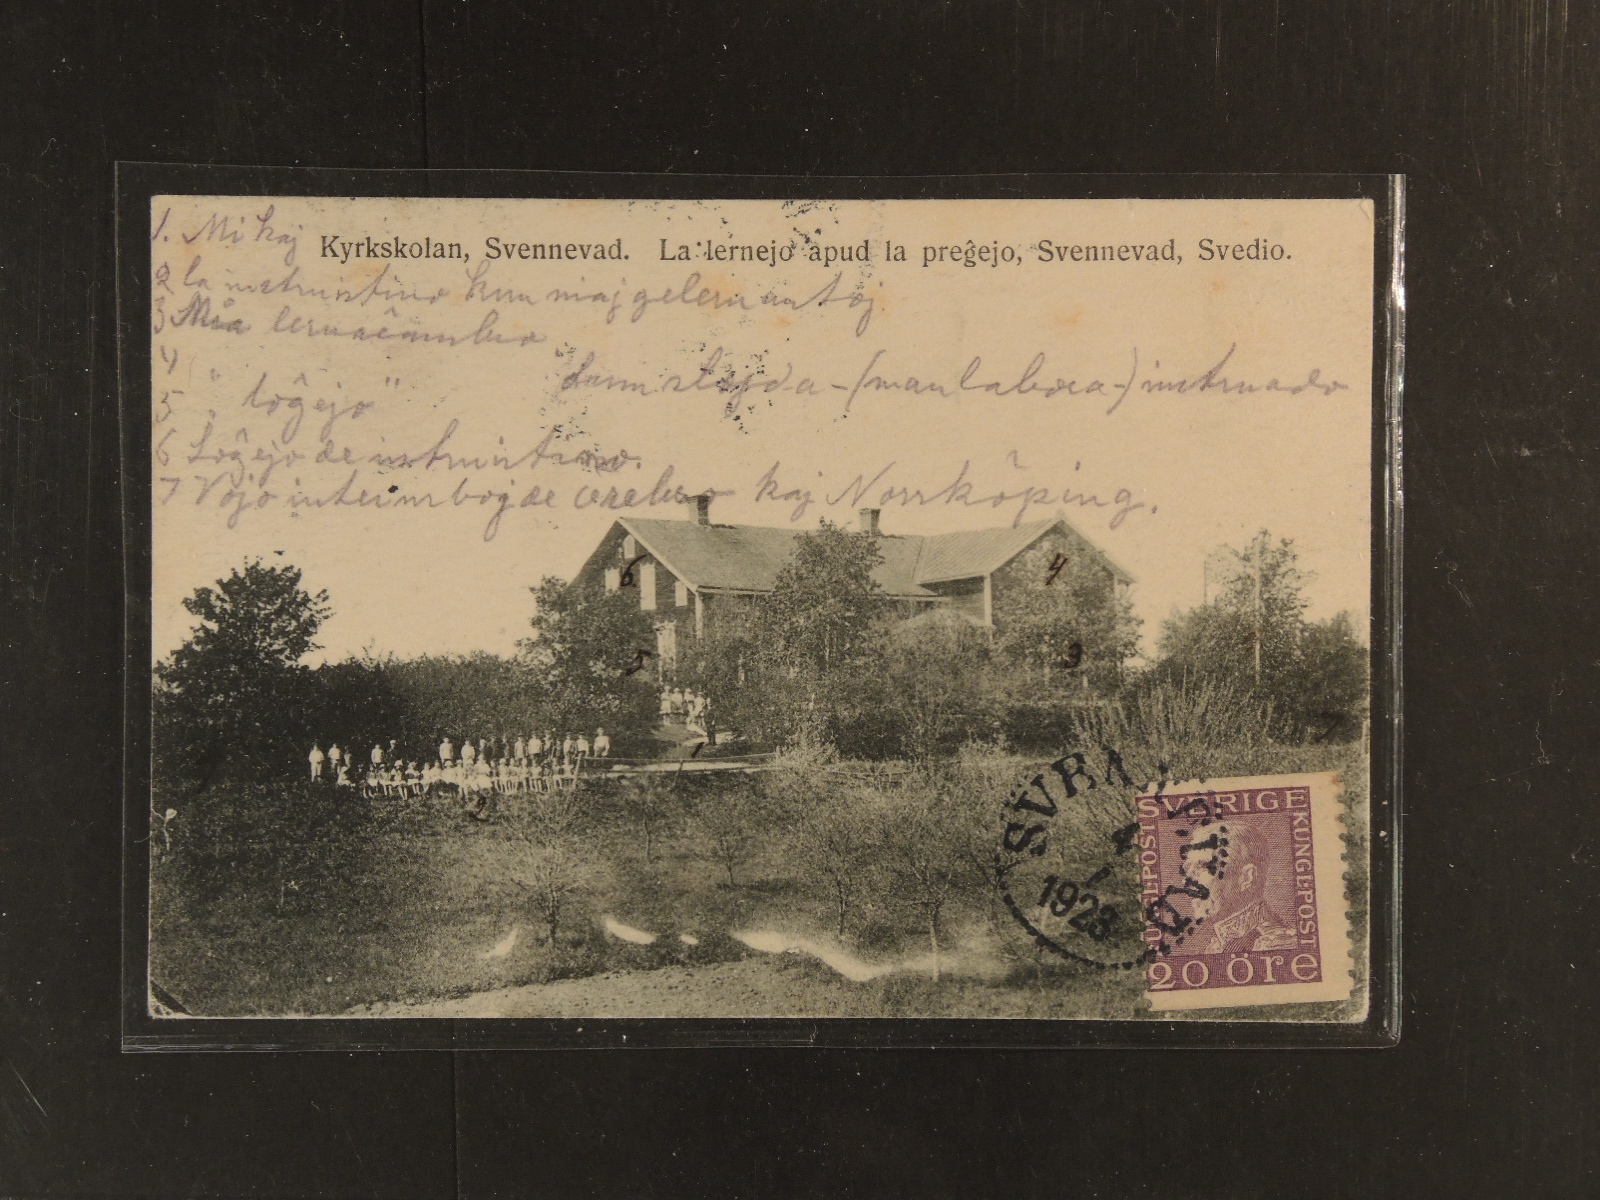 1. Mi kaj
Kyrkskolan, Svennevad. La lernejo apud la preĝejo, Svennevad, Svedio.
2 la instruistino kun niaj gelernantoj.
3 Mia lernaĉambro
4 " " dum slojda-(manlabora-) instruado
5 " loĝejo "
6 Loĝejo de instruistino.
7 Vojo interurboj de Œrebro kaj Norrköping.
6.
4
5
3
7
1
2
4
1923
SVERIGE
KUNGL·POST
20 öre